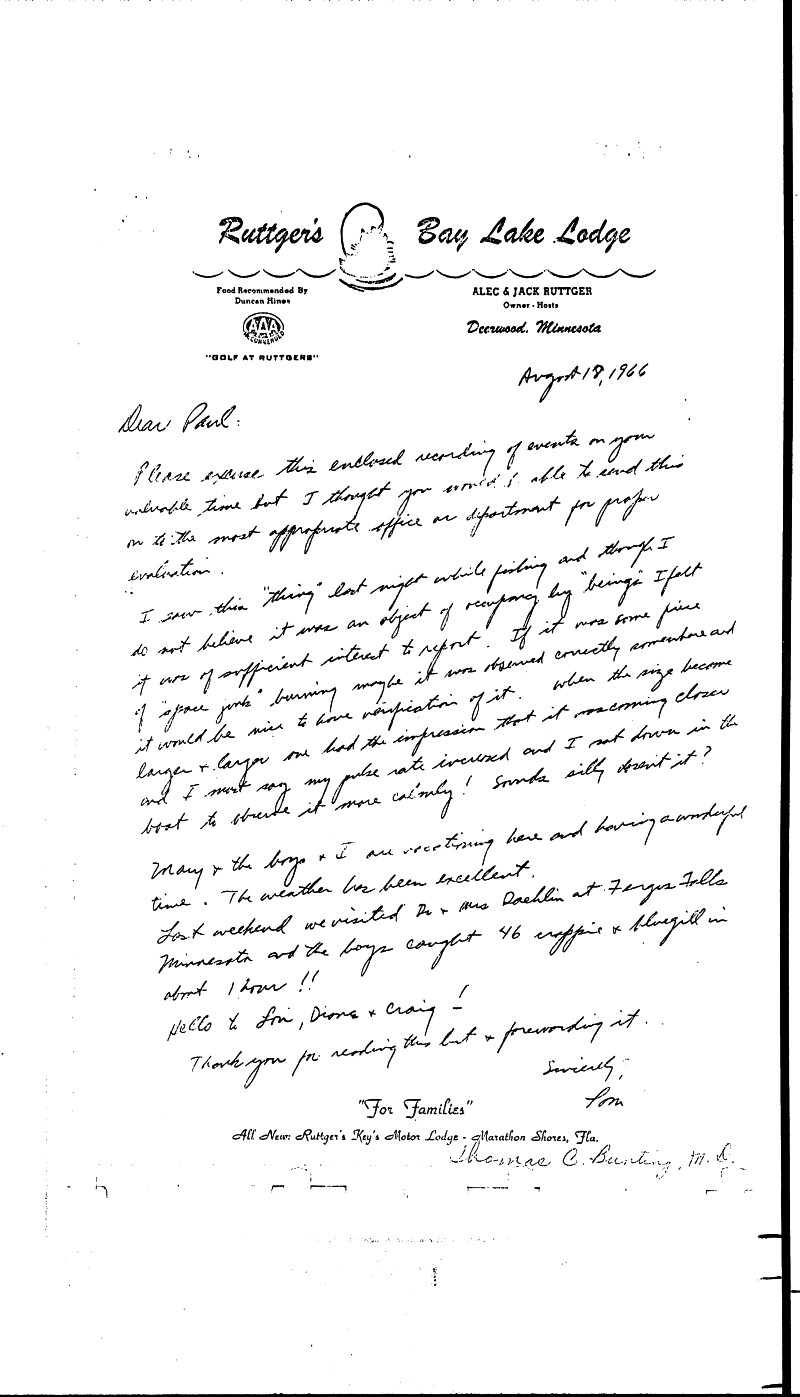 Ruttger's Bay Lake Lodge
Food Recommended By
Duncan Hines
AAA
RECOMMENDED
"GOLF AT RUTTGERS"
ALEC & JACK RUTTGER
Owner - Hosts
Deerwood, Minnesota
August 18, 1966
Dear Paul:
Please excuse this enclosed recording of events on your
valuable time but I thought you would able to send this
on to the most appropriate office or department for proper
evaluation.
I saw this "thing" last night while fishing and though I
do not believe it was an object of occupancy by "beings" I felt
it was of sufficient interest to report. If it was some piece
of "space junk" burning maybe it was observed correctly somewhere and
it would be nice to have verification of it. When the size become
larger & larger one had the impression that it was coming closer
and I must say my pulse rate increased and I sat down in the
boat to observe it more calmly! Sounds silly doesn't it?
Mary & the boys & I are vacationing here and having a wonderful
time. The weather has been excellent.
Last weekend we visited Dr & Mrs at Fergus Falls
Minnesota and the boys caught 46 crappie & bluegill in
about 1 hour!!
Hello to Diane & Craig -!
Thank you for reading this & forewording it.
Sincerely,
Tom
"For Families"
All New: Ruttger's Key's Motor Lodge - Marathon Shores, Fla.
Thomas C. Bunting, M.D.